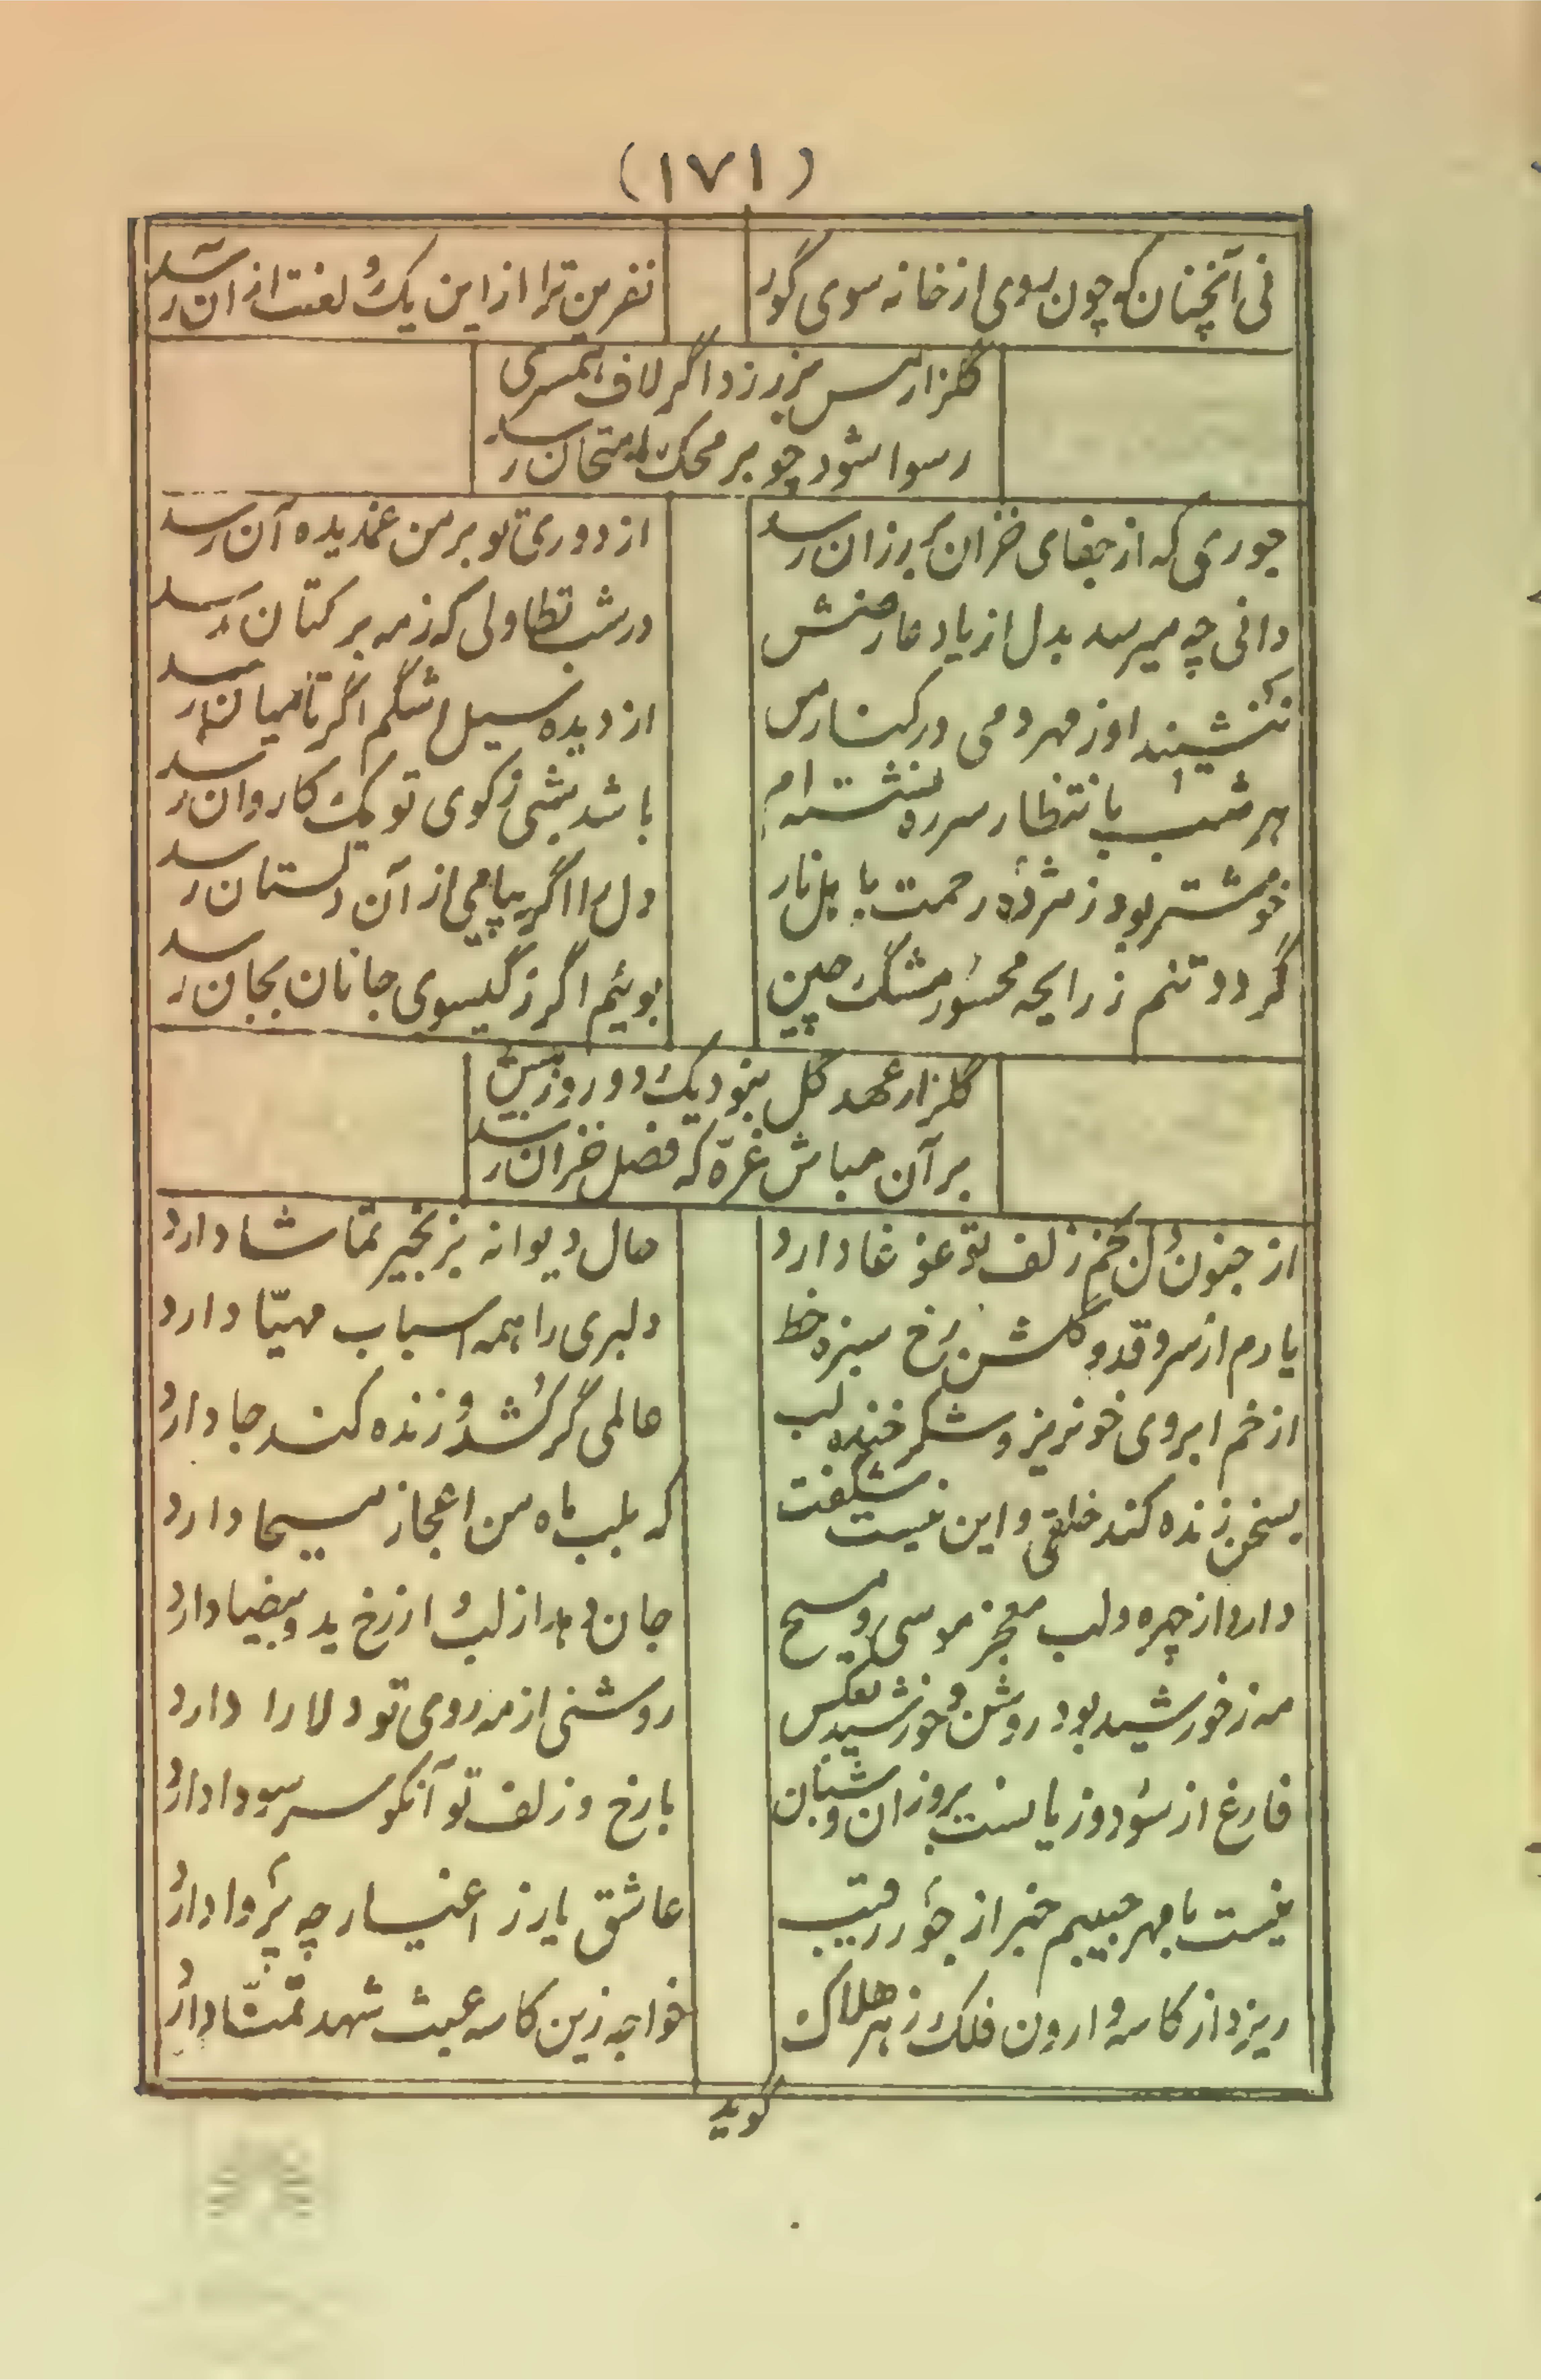 (۱۷۱)
نی آنچنان که چون بروی از خانه سوی گور
نفرین ترا از این یک و لعنت از آن رسد
گلزار مس بزر زد اگر لاف همسری
رسوا شود چو بر محک امتحان رسد
جوری که از جفای خزان بر رزان رسد
از دوری تو بر من غمدیده آن رسد
دانی چه میرسد بدل از یاد عارضش
در شب تطاولی که ز مه بر کتان رسد
ننشیند او ز مهر دمی در کنار من
از دیده سیل اشکم اگر تا میان رسد
هر شب بانتظار سر ره نشسته ام
باشد شبی ز کوی تو یک کاروان رسد
خوشتر بود ز مژده رحمت باهل نار
دل را اگر پیامی از آن دلستان رسد
گردد تنم ز رایحه محسور مشک چین
بوئیم اگر ز گیسوی جانان بجان رسد
گلزار عهد گل نبود یک دو روز بیش
بر آن مباش غره که فصل خزان رسد
از جنون دل بخم زلف تو غوغا دارد
حال دیوانه بزنجیر تماشا دارد
یارم از سرو قد و گلشن رخ سبزه خط
دلبری را همه اسباب مهیّا دارد
از خم ابروی خونریز و شکر خنده لب
عالمی گر کُشد و زنده کند جا دارد
بسخن زنده کند خلقی و این نیست شگفت
که بلب ماه من اعجاز مسیحا دارد
دارد از چهره و لب معجز موسی و مسیح
جان دهد از لب و از رخ ید و بیضا دارد
مه ز خورشید بود روشن و خورشید بعکس
روشنی از مه روی تو دلارا دارد
فارغ از سود و زیانست بروزان و شبان
با رخ و زلف تو آنکو سر سودا دارد
نیست با مهر حبیبم خبر از جور رقیب
عاشق یار ز اغیار چه پروا دارد
ریزد از کاسه وارون فلک زهر هلاک
خواجه زین کاسه عبث شهد تمنّا دارد
گوید